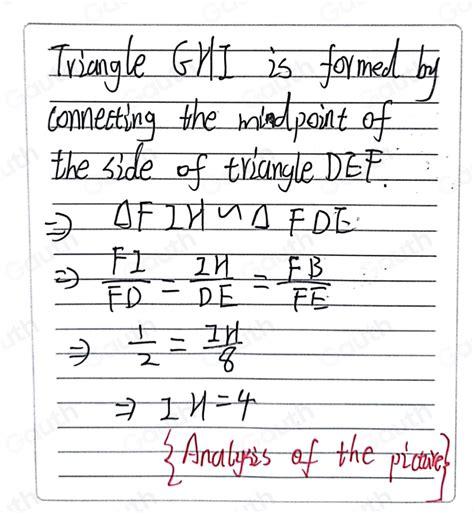 Triangle GHI is formed by
connecting the mindpoint of
the side of triangle DEF.
⇒ ΔFIH ∽ Δ FDE
⇒ FI/FD = IH/DE = FB/FE
⇒ 1/2 = IH/8
⇒ IH=4
{Analysis of the picture}